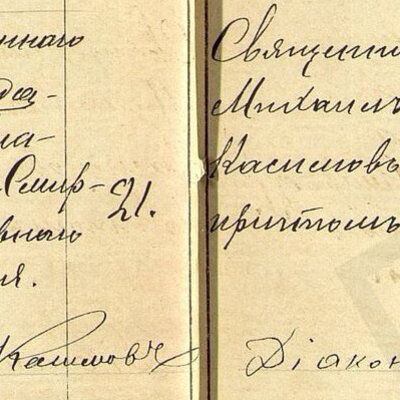 ннаго
Смир-
21.
внаго
я.
Касимовъ
Священни
Михаилъ
Касимовъ
притомъ
Діакон